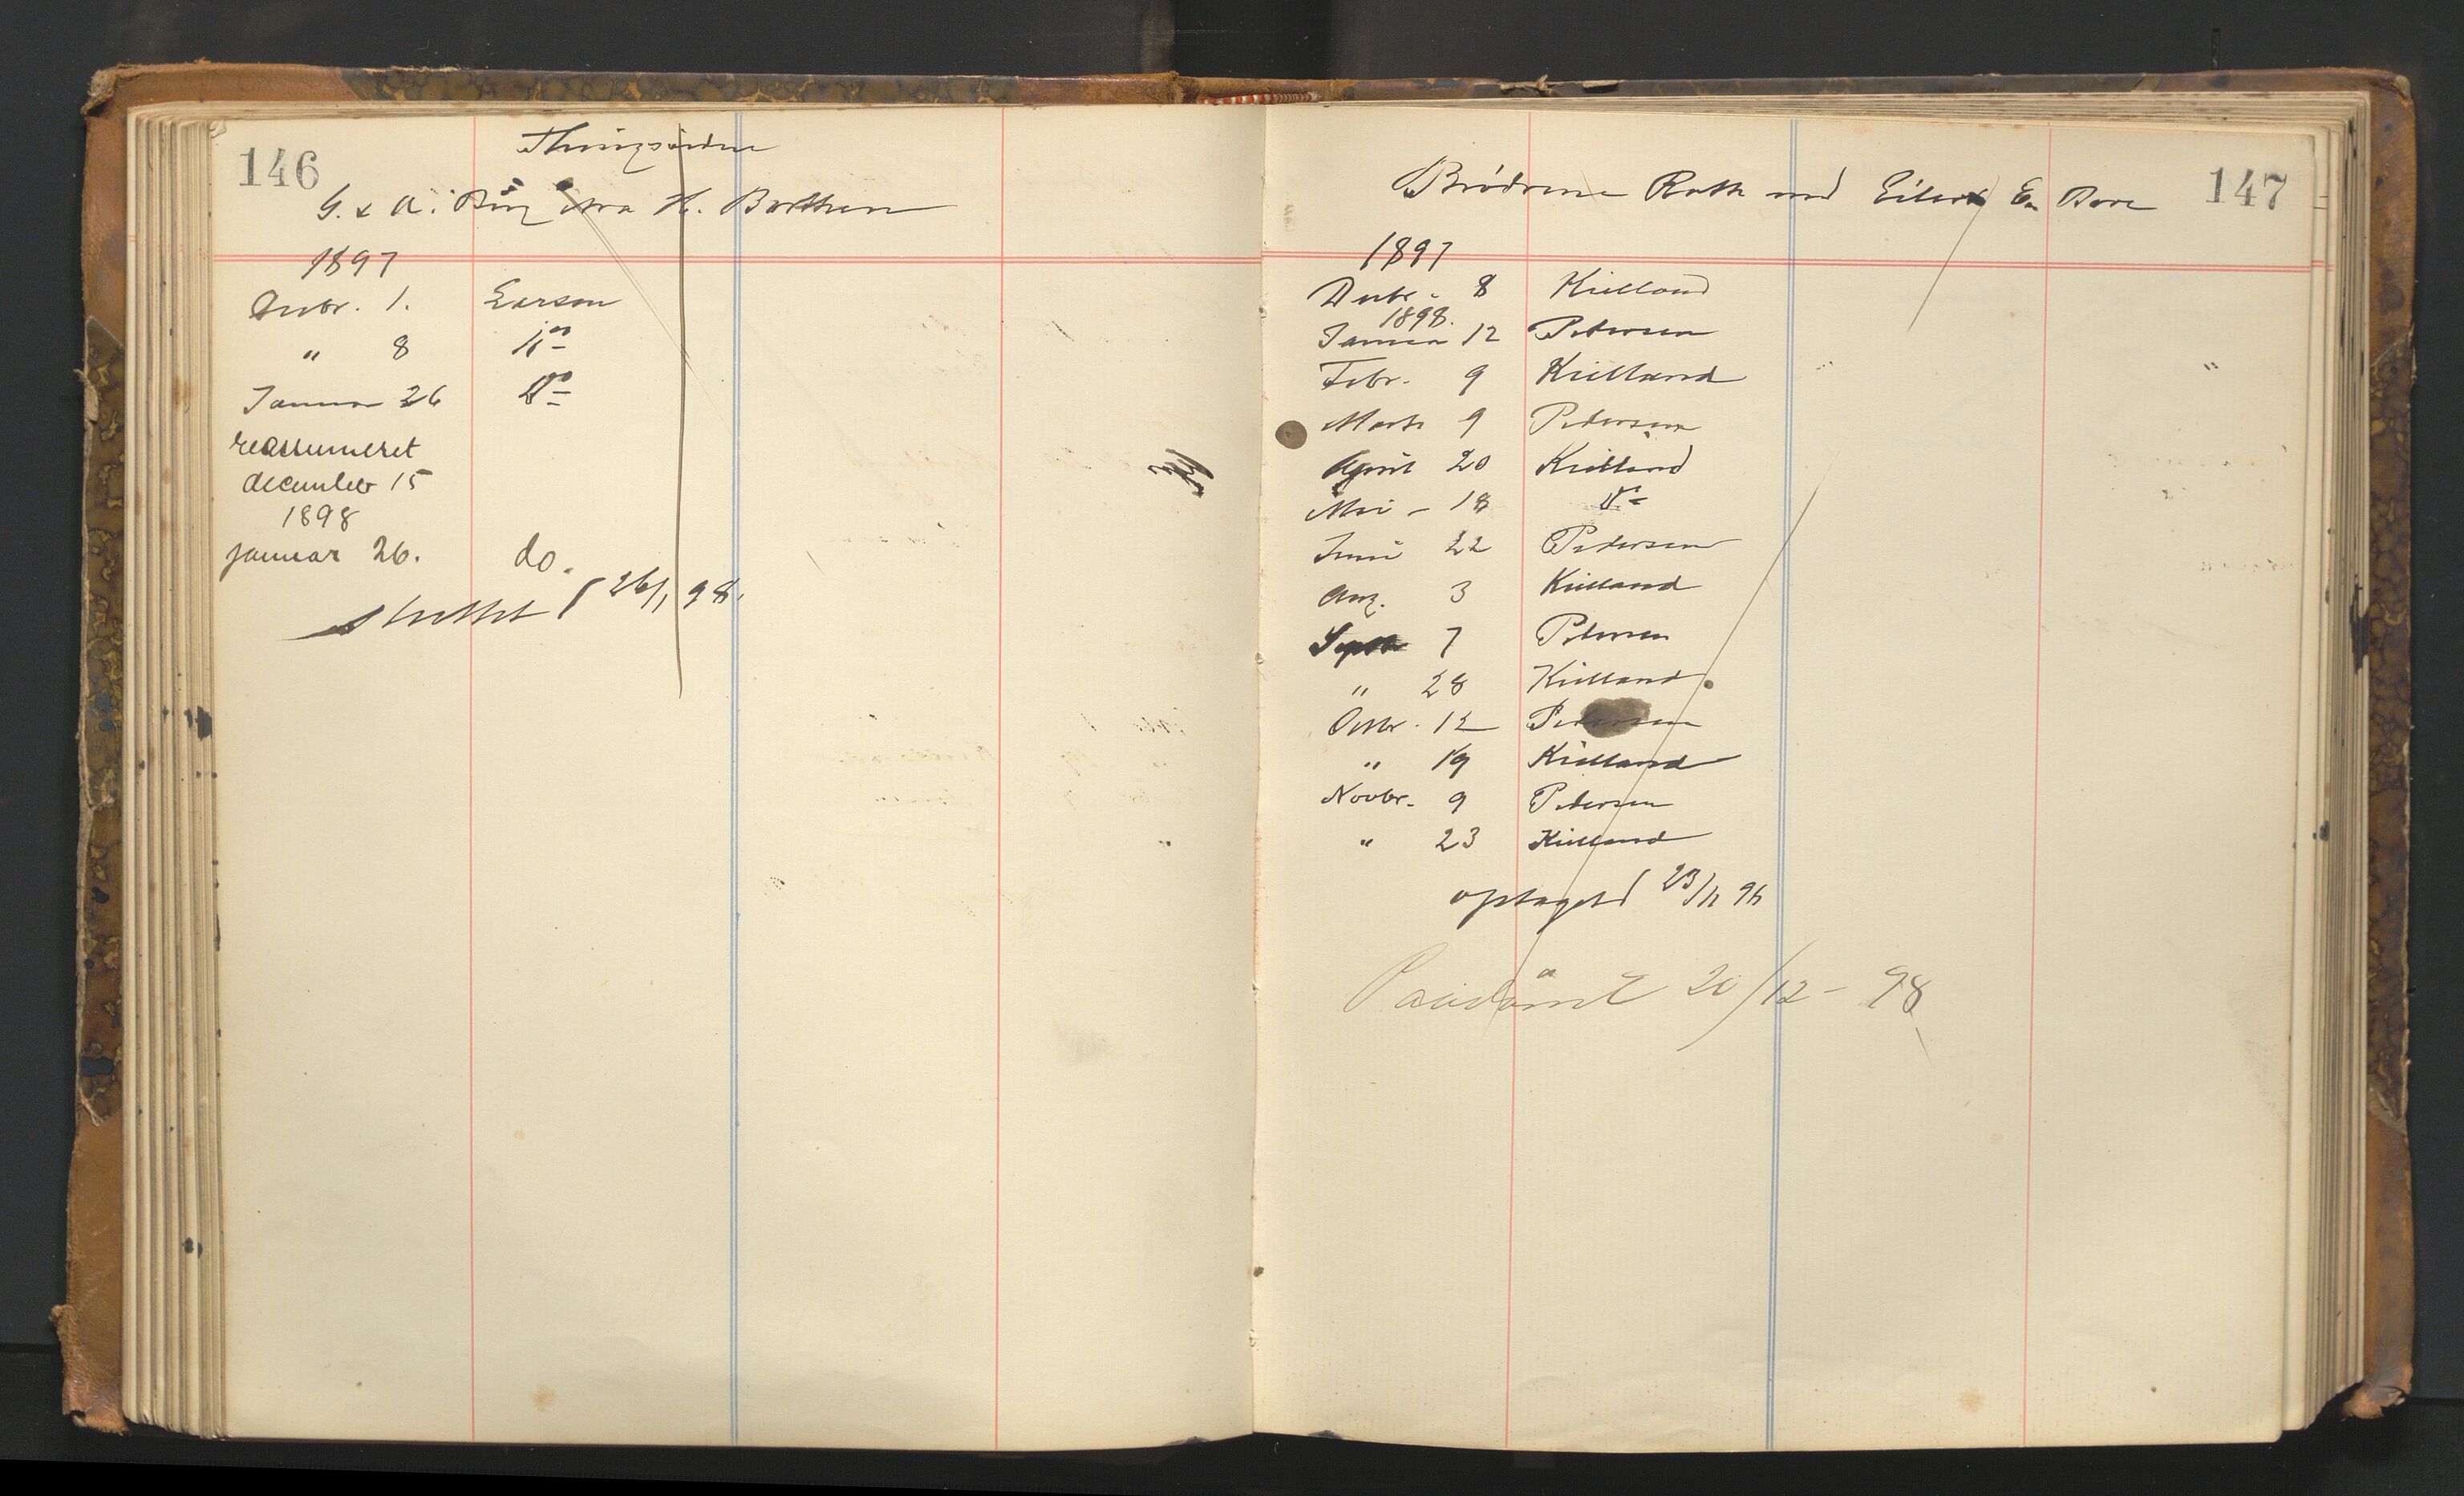 146
G. & A. Bürg ctra H. Barthun
1897
Decbr. 1. Larson
" 8 do
Januar 26 do
reassumeret
december 15
1898
januar 26. do.
sluttet 26/1 98.
147
Brødrene Rath mod Eilert E. Bore
1897
Decbr. 8 Kielland
1898.
Januar 12 Petersen
Febr. 9 Kielland
Marts 9 Petersen
April 20 Kielland
Mai - 18 do
Juni 22 Petersen
Aug. 3 Kielland
Septr 7 Petersen
" 28 Kielland
Octbr. 12 Petersen
" 19 Kielland
Novbr. 9 Petersen
" 23 Kielland
optaget 23/11 98
Paadømt 20/12 - 98